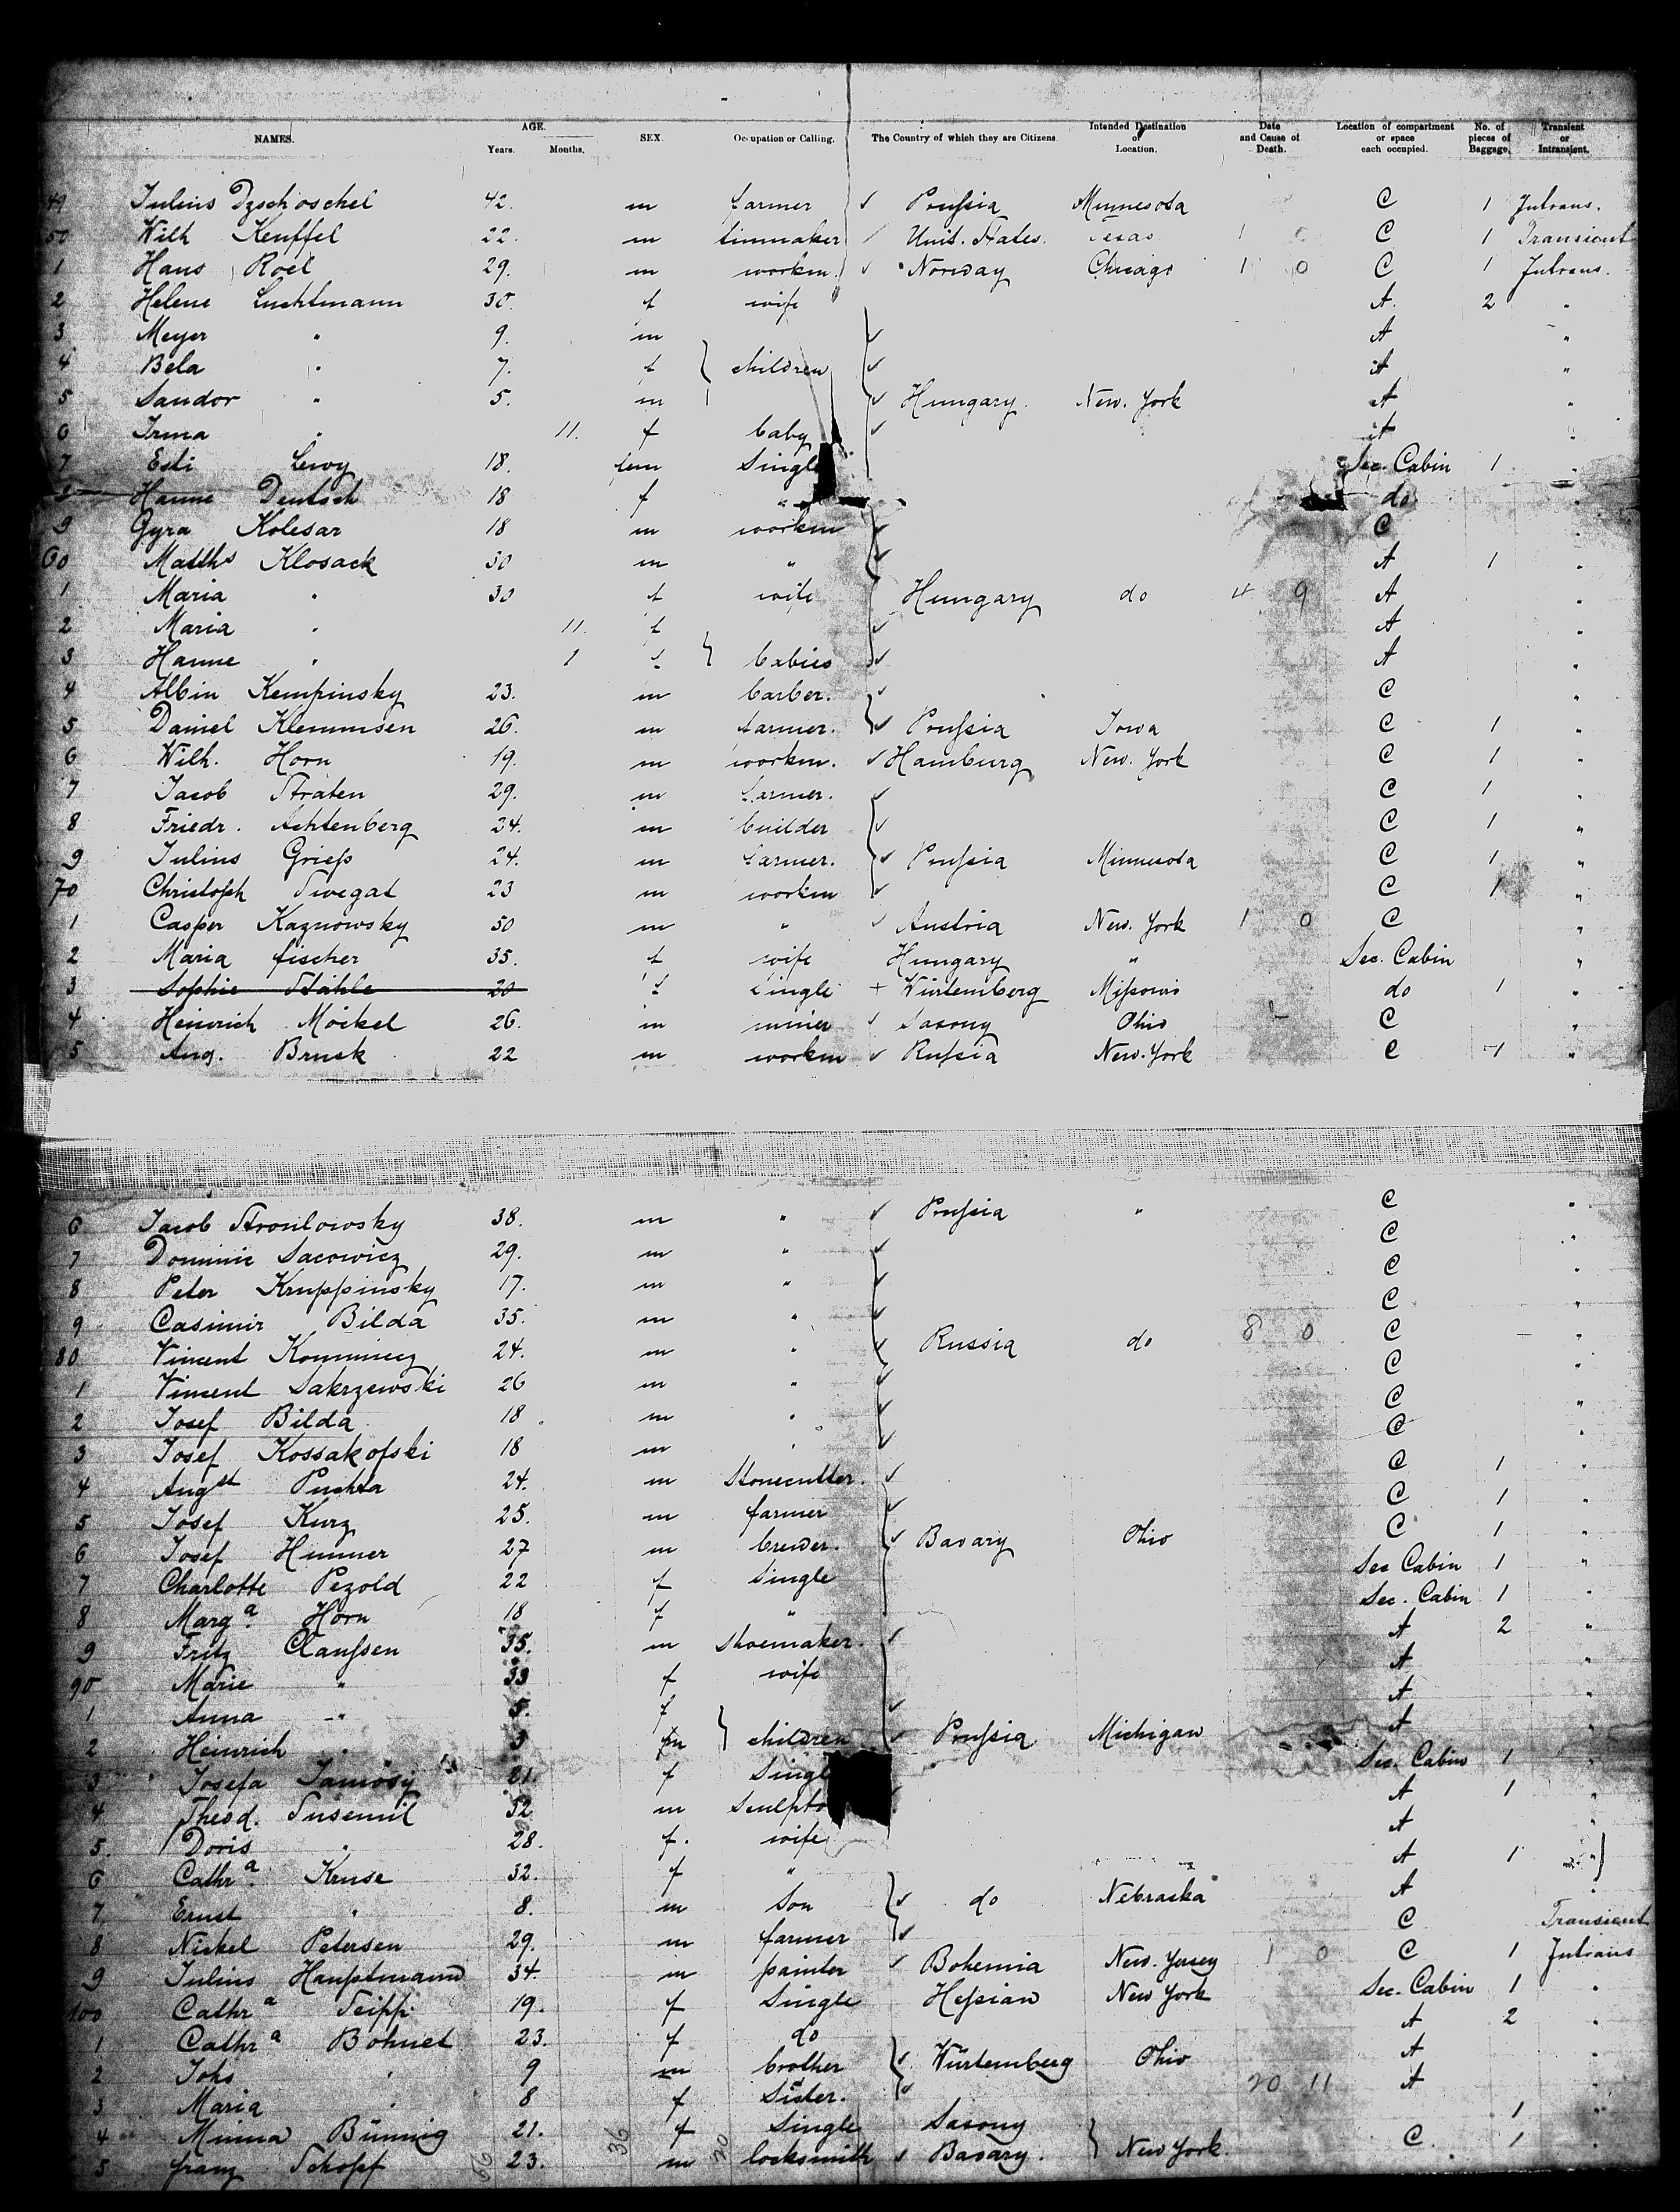 NAMES. AGE. Years. Months. SEX. Occupation or Calling. The Country of which they are Citizens. Intended Destination or Location. Date and Cause of Death. Location of compartment or space each occupied. No. of pieces of Baggage. Transient or Intransient.
49 Julius Dzschoschel 42. m farmer Prussia Minnesota C 1 Intrans.
50 Wilh Keuffel 22. m tinmaker Unit. States. Texas C 1 Transient
1 Hans Roel 29. m workm. Norway Chicago 1 0 C 1 Intrans.
2 Helene Luchtmann 30. f wife A. 2 "
3 Meyer " 9. m A "
4 Bela " 7. f } children A "
5 Sandor " 5. m Hungary. New. York A "
6 Irma " 11. f baby A "
7 Esti Lewy 18. fem Single Sec. Cabin 1 "
Hanne Deutsch 18 f " do "
9 Gyra Kolesar 18 m workm C "
60 Matths Klosack 30 m " A 1 "
1 Maria " 30 f wife Hungary do 4 9 A "
2 Maria " 11. f A "
3 Hanne " 1 f } babies A "
4 Albin Kempinsky 23. m barber. C "
5 Daniel Klemmsen 26. m farmer. Prussia Iowa C 1 "
6 Wilh. Horn 19. m workm. Hamburg New. York C 1 "
7 Jacob Straten 29. m farmer. C 1 "
8 Friedr. Achtenberg 24. m builder C 1 "
9 Julius Griess 24. m farmer. Prussia Minnesota C 1 "
70 Christoph Swegat 23 m workm C 1 "
1 Casper Kaznowsky 50 m " Austria New. York 1 0 C "
2 Maria fischer 35. f wife Hungary " Sec. Cabin "
3 Sophie Stähle 20 f Single + Würtemberg Missouri do 1 "
4 Heinrich Möckel 26. m miner Saxony Ohio C "
5 Aug. Brusk 22 m workm Russia New. York C 1 "
6 Jacob Stronlowsky 38. m " Prussia " C "
7 Dominic Sacowicz 29. m " C "
8 Peter Kruppinsky 17. m " C "
9 Casimir Bilda 35. m " C "
80 Vincent 24. m " Russia do 8 0 C "
1 Vincent Sakrzewski 26 m " C "
2 Josef Bilda 18 m " C "
3 Josef Kossakofski 18 m " C "
4 Augst Puchta 24. m Stonecutter. C 1 "
5 Josef Kurz 25. m farmer C 1 "
6 Josef Hummer 27 m brewer. Bavary Ohio C 1 "
7 Charlotte Pezold 22 f Single Sec Cabin 1 "
8 Marga. Horn 18 f " Sec. Cabin 1 "
9 Fritz Claussen 35. m Shoemaker. A 2 "
90 Marie " 33 f wife A "
1 Anna " 5. f A "
2 Heinrich " 3 m } children Prussia Michigan A "
3 Josefa 21. f Singl Sec. Cabin 1 "
4 Theod. Susemil 32 m Sculpto A 1 "
5. Doris " 28. f. wife A "
6 Cathra. Kruse 32. f " A 1 "
7 Ernst " 8. m Son do Nebraska A "
8 Nickel Petersen 29. m farmer C Transient
9 Julius Hauptmann 34. m painter Bohemia New. Yersey 1 0 C 1 Intrans
100 Cathra Seipp 19. f Single Hessian New York Sec. Cabin 1 "
1 Cathra Bohnet 23. f do A 2 "
2 Johs " 9 m brother Würtemberg Ohio A "
3 Maria " 8 f Sister. 20 11 A "
4 Minna Bünnig 21. f Single Saxony 1 "
5 franz Schopf 23. m locksmith Bavary. } New York. C. 1 "
66 36 20